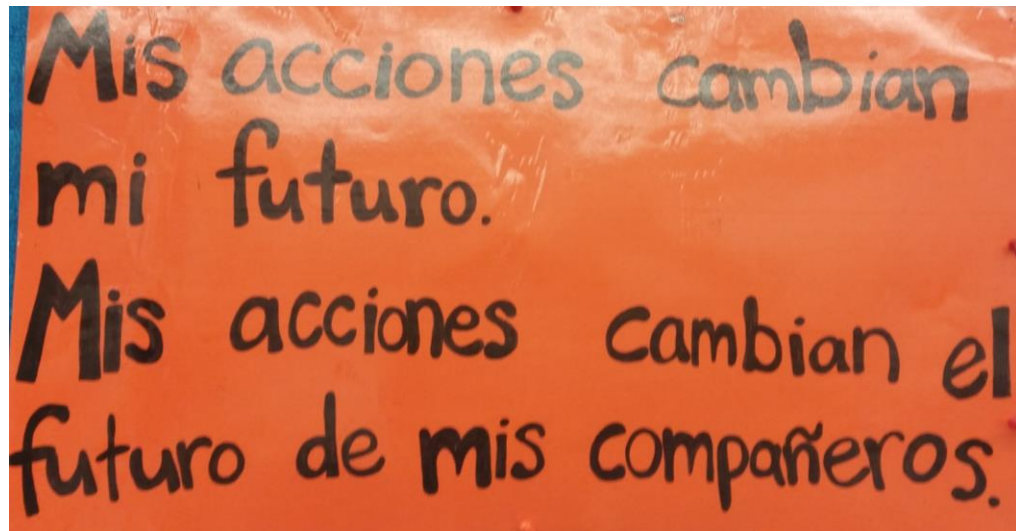 Mis acciones cambian
mi futuro.
Mis acciones cambian el
futuro de mis compañeros.